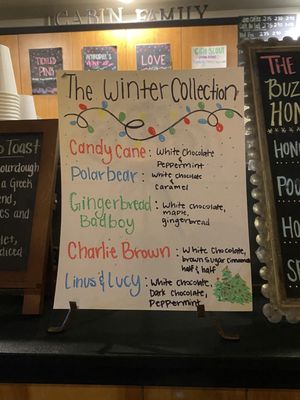 CABIN FAMILY
TICKLED
PINK
LOVE
The Winter Collection
Candy Cane: White Chocolate
Peppermint
Polar bear: White chocolate
& caramel
Gingerbread
Badboy: White chocolate,
maple,
gingerbread
Charlie Brown: White Chocolate,
brown sugar cinnamon
half & half
Linus & Lucy: White Chocolate,
Dark Chocolate,
Peppermint
TOAST
THE
BUZZ
HON